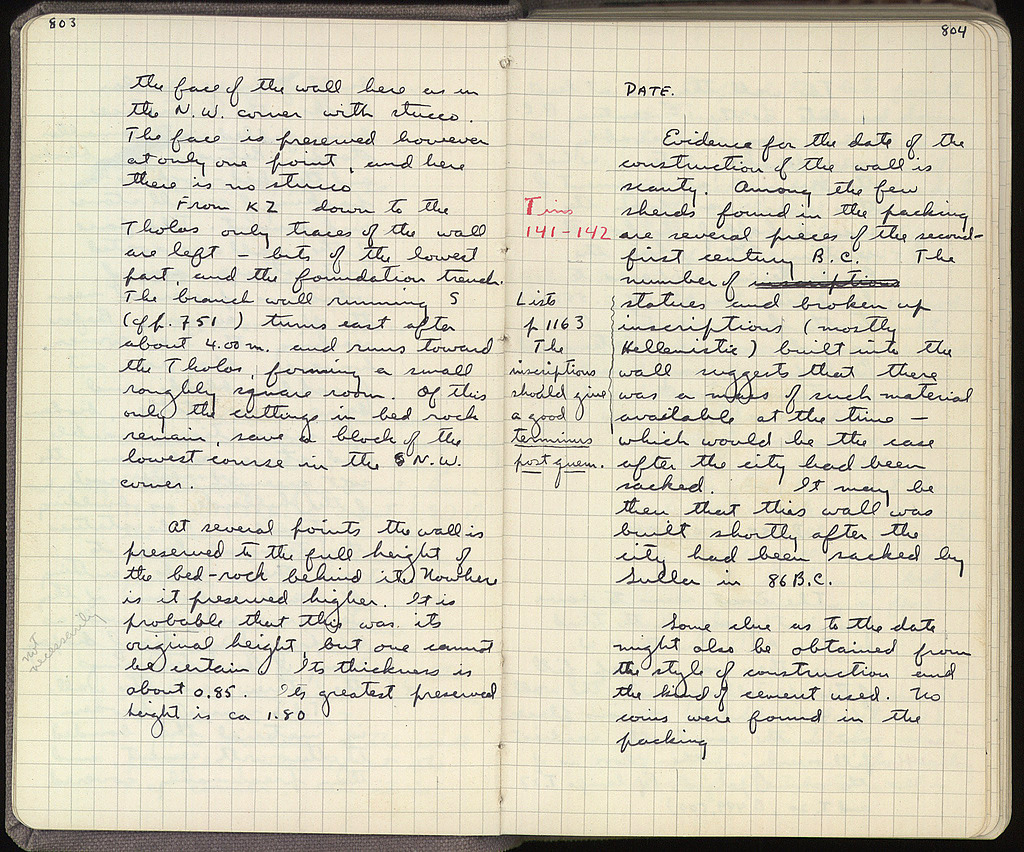 803
the face of the wall here as in
the N.W. corner with stucco.
The face is preserved however
at only one point, and here
there is no stucco
From KZ down to the
Tholos only traces of the wall
are left – bits of the lowest
part, and the foundation trench.
The branch wall running S
(cf p. 751) turns east after
about 4.00 m. and runs toward
the Tholos, forming a small
roughly square room. Of this
only the cuttings in bed rock
remain, save a block of the
lowest course in the N.W.
corner.
At several points the wall is
preserved to the full height of
the bed-rock behind it. Nowhere
is it preserved higher. It is
probable that this was its
original height, but one cannot
be certain Its thickness is
about 0.85. Its greatest preserved
height is ca 1.80
not
necessarily
804
DATE.
Evidence for the date of the
construction of the wall is
scanty. Among the few
sherds found in the packing
are several pieces of the second-
first century B.C. The
number of inscriptions
statues and broken up
inscriptions (mostly
Hellenistic) built into the
wall suggests that there
was a mass of such material
available at the time –
which would be the case
after the city had been
sacked. It may be
then that this wall was
built shortly after the
city had been sacked by
Sulla in 86 B.C.
Some clue as to the date
might also be obtained from
the style of construction and
the kind of cement used. No
coins were found in the
packing
Tins
141-142
Lists
p 1163
The
inscriptions
should give
a good
terminus
post quem.